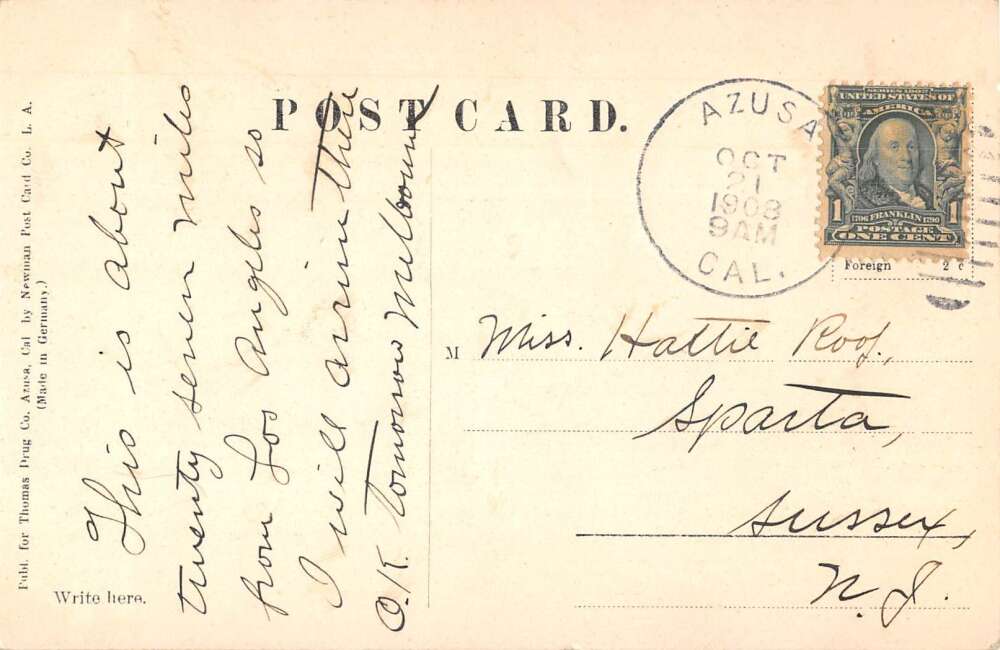 POST CARD.
Publ. for Thomas Drug Co. Azusa, Cal by Newman Post Card Co. L. A.
(Made in Germany.)
This is about
twenty seven miles
from Los Angles so
I will arrive there
O.K. tomorrow
Write here.
AZUSA
OCT
21
1908
9AM
CAL.
SERIES 1902
UNITED STATES OF
AMERICA
1 1706 FRANKLIN 1790 1
POSTAGE
ONE CENT
Foreign 2 c
M Miss. Hattie Roof,
Sparta,
Sussex,
N.J.